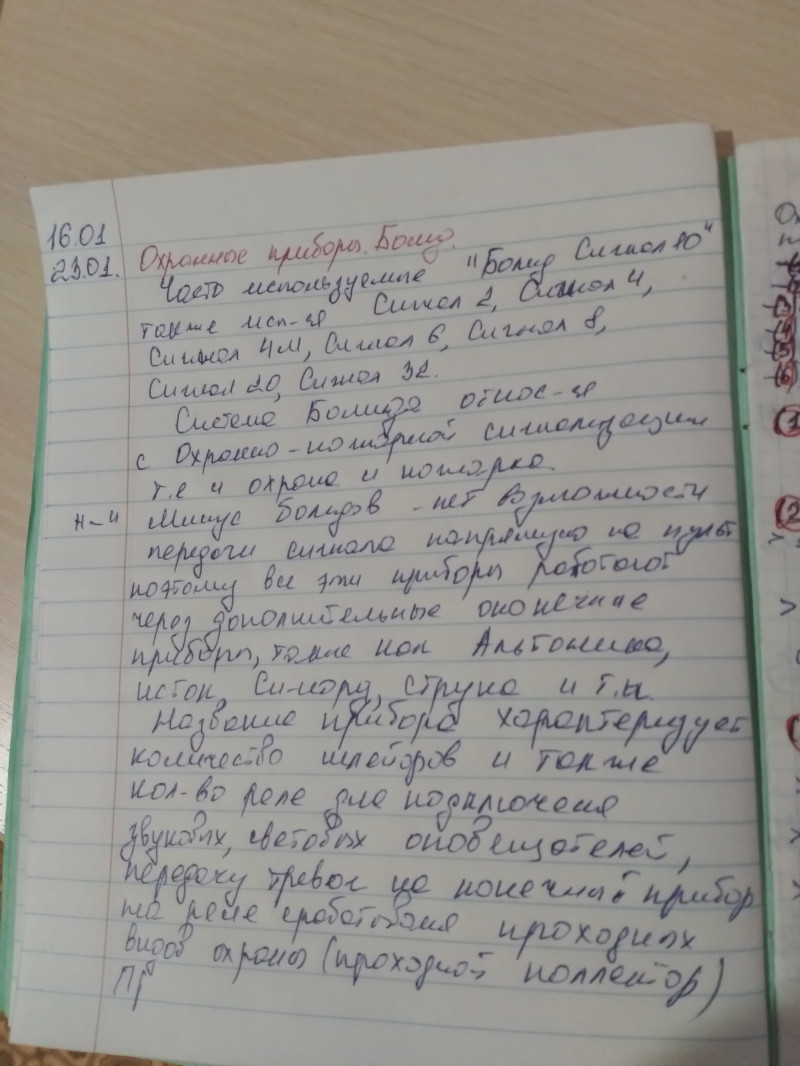 16.01
23.01.
Охранные приборы. Болид.
Часто используемые "Болид Сигнал 10"
также исп-ся Сигнал 2, Сигнал 4,
Сигнал 4М, Сигнал 6, Сигнал 8,
Сигнал 20, Сигнал 32.
Система Болида относ-ся
с Охранно-пожарной сигнализации
т.е и охрана и пожарка.
н-и Минус болидов - нет возможности
передачи сигнала напрямую на пульт
поэтому все эти приборы работают
через дополнительные оконечные
приборы, такие как Альтоника,
исток, Си-норд, струна и т.п.
Название прибора характеризует
количество шлейфов и также
кол-во реле для подключения
звуковых, световых оповещателей,
передачу тревог на конечный прибор
на реле сработования проходных
видов охраны (проходной коллектор)
Пр
1
2